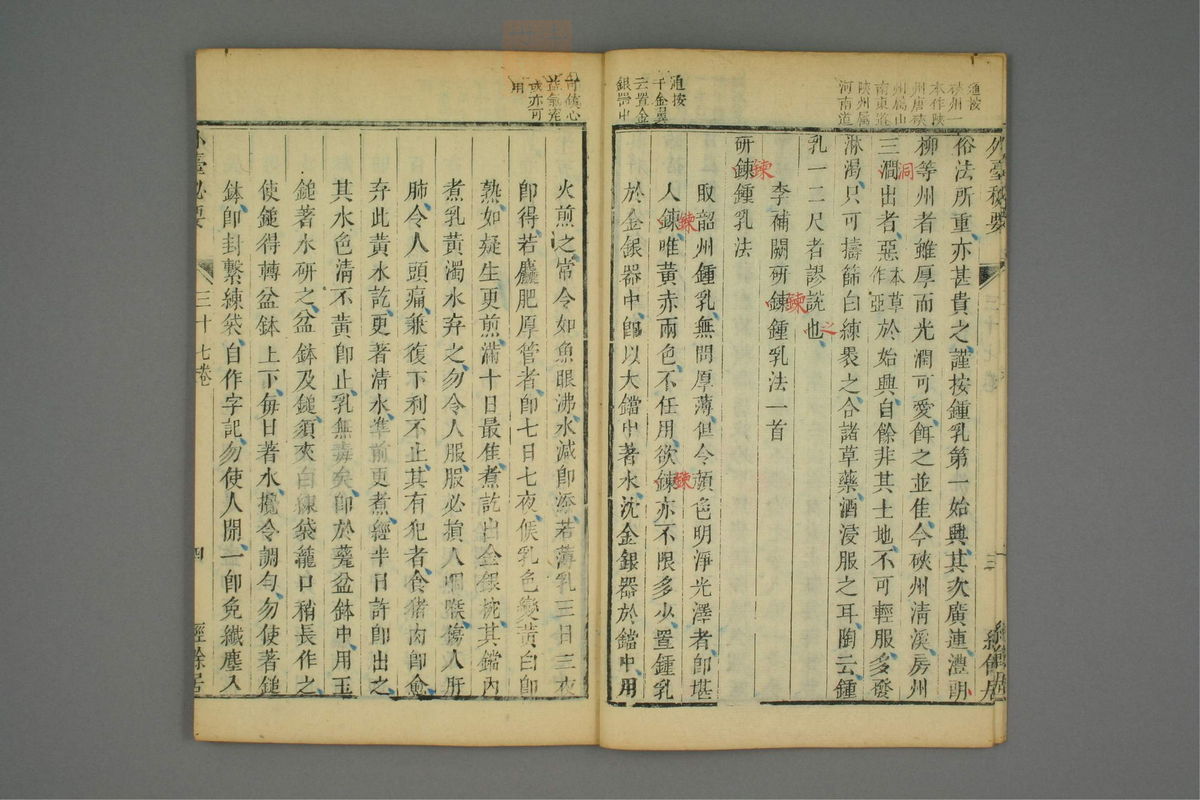 通按
硤州一
本作陝
州唐硤
州屬山
南東道
陝州屬
河南道
通按
千金翼
云置金
銀器中
外臺秘要
三十七卷
三
經餘居
俗法所重亦甚貴之謹按鍾乳第一始興其次廣連澧朗
柳等州者雖厚而光潤可愛餌之並佳今硤州清溪房州
三澗出者惡本草作亞於始興自餘非其土地不可輕服多發
淋渴只可擣篩白練裹之合諸草藥酒浸服之耳陶云鍾
乳一二尺者謬說也
李補闕研鍊鍾乳法一首
研鍊鍾乳法
取韶州鍾乳無問厚薄但令顏色明淨光澤者即堪
人鍊唯黃赤兩色不任用欲鍊亦不限多少置鍾乳
於金銀器中即以大鐺中著水沈金銀器於鐺中用
洞
之
鍊
鍊
鍊
鍊
可鎮心
益氣充
或亦可
用
火煎之當令如魚眼沸水減即添若薄乳三日三夜
即得若麤肥厚管者即七日七夜候乳色變黃白即
熟如疑生更煎滿十日最佳煮訖出金銀椀其鐺內
煮乳黃濁水弃之勿令人服服必損人咽喉傷人肝
肺令人頭痛兼復下利不止其有犯者食猪肉即愈
弃此黃水訖更著清水準前更煮經半日許即出之
其水色清不黃即止乳無毒矣即於甆盆鉢中用玉
鎚著水研之盆鉢及鎚須夾白練袋籠口稍長作之
使鎚得轉盆鉢上下每日著水攪令調勻勿使著鎚
鉢即封繫練袋自作字記勿使人開一即免纖塵入
外臺秘要
三十七卷
四
經餘居